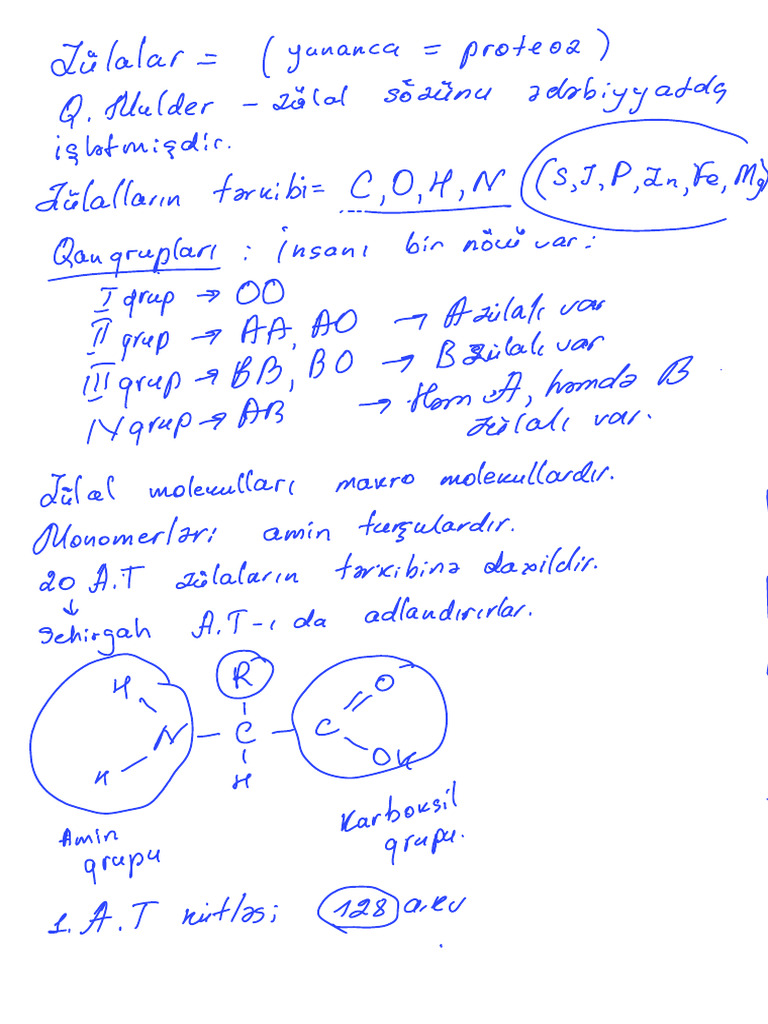 Zülalar = (yunanca = proteoz)
Q. Mulder - zülal sözünü ədəbiyyatda
işlətmişdir.
Zülalların tərkibi = C, O, H, N (S, J, P, Zn, Fe, Mg)
Qan qrupları : İnsanı bin növü var:
I qrup → OO
II qrup → AA, AO → A zülalı var
III qrup → BB, BO → B zülalı var
IV qrup → AB → Həm A, həmdə B
zülalı var.
Zülal molekulları makro molekullardır.
Monomerləri amin turşulardır.
20 A.T zülaların tərkibinə daxildir.
↓
Sehirgah A.T-ı da adlandırırlar.
H R O
N - C - C
H H OH
Amin
qrupu
Karboksil
qrupu.
1. A.T kütləsi 128 a.kv